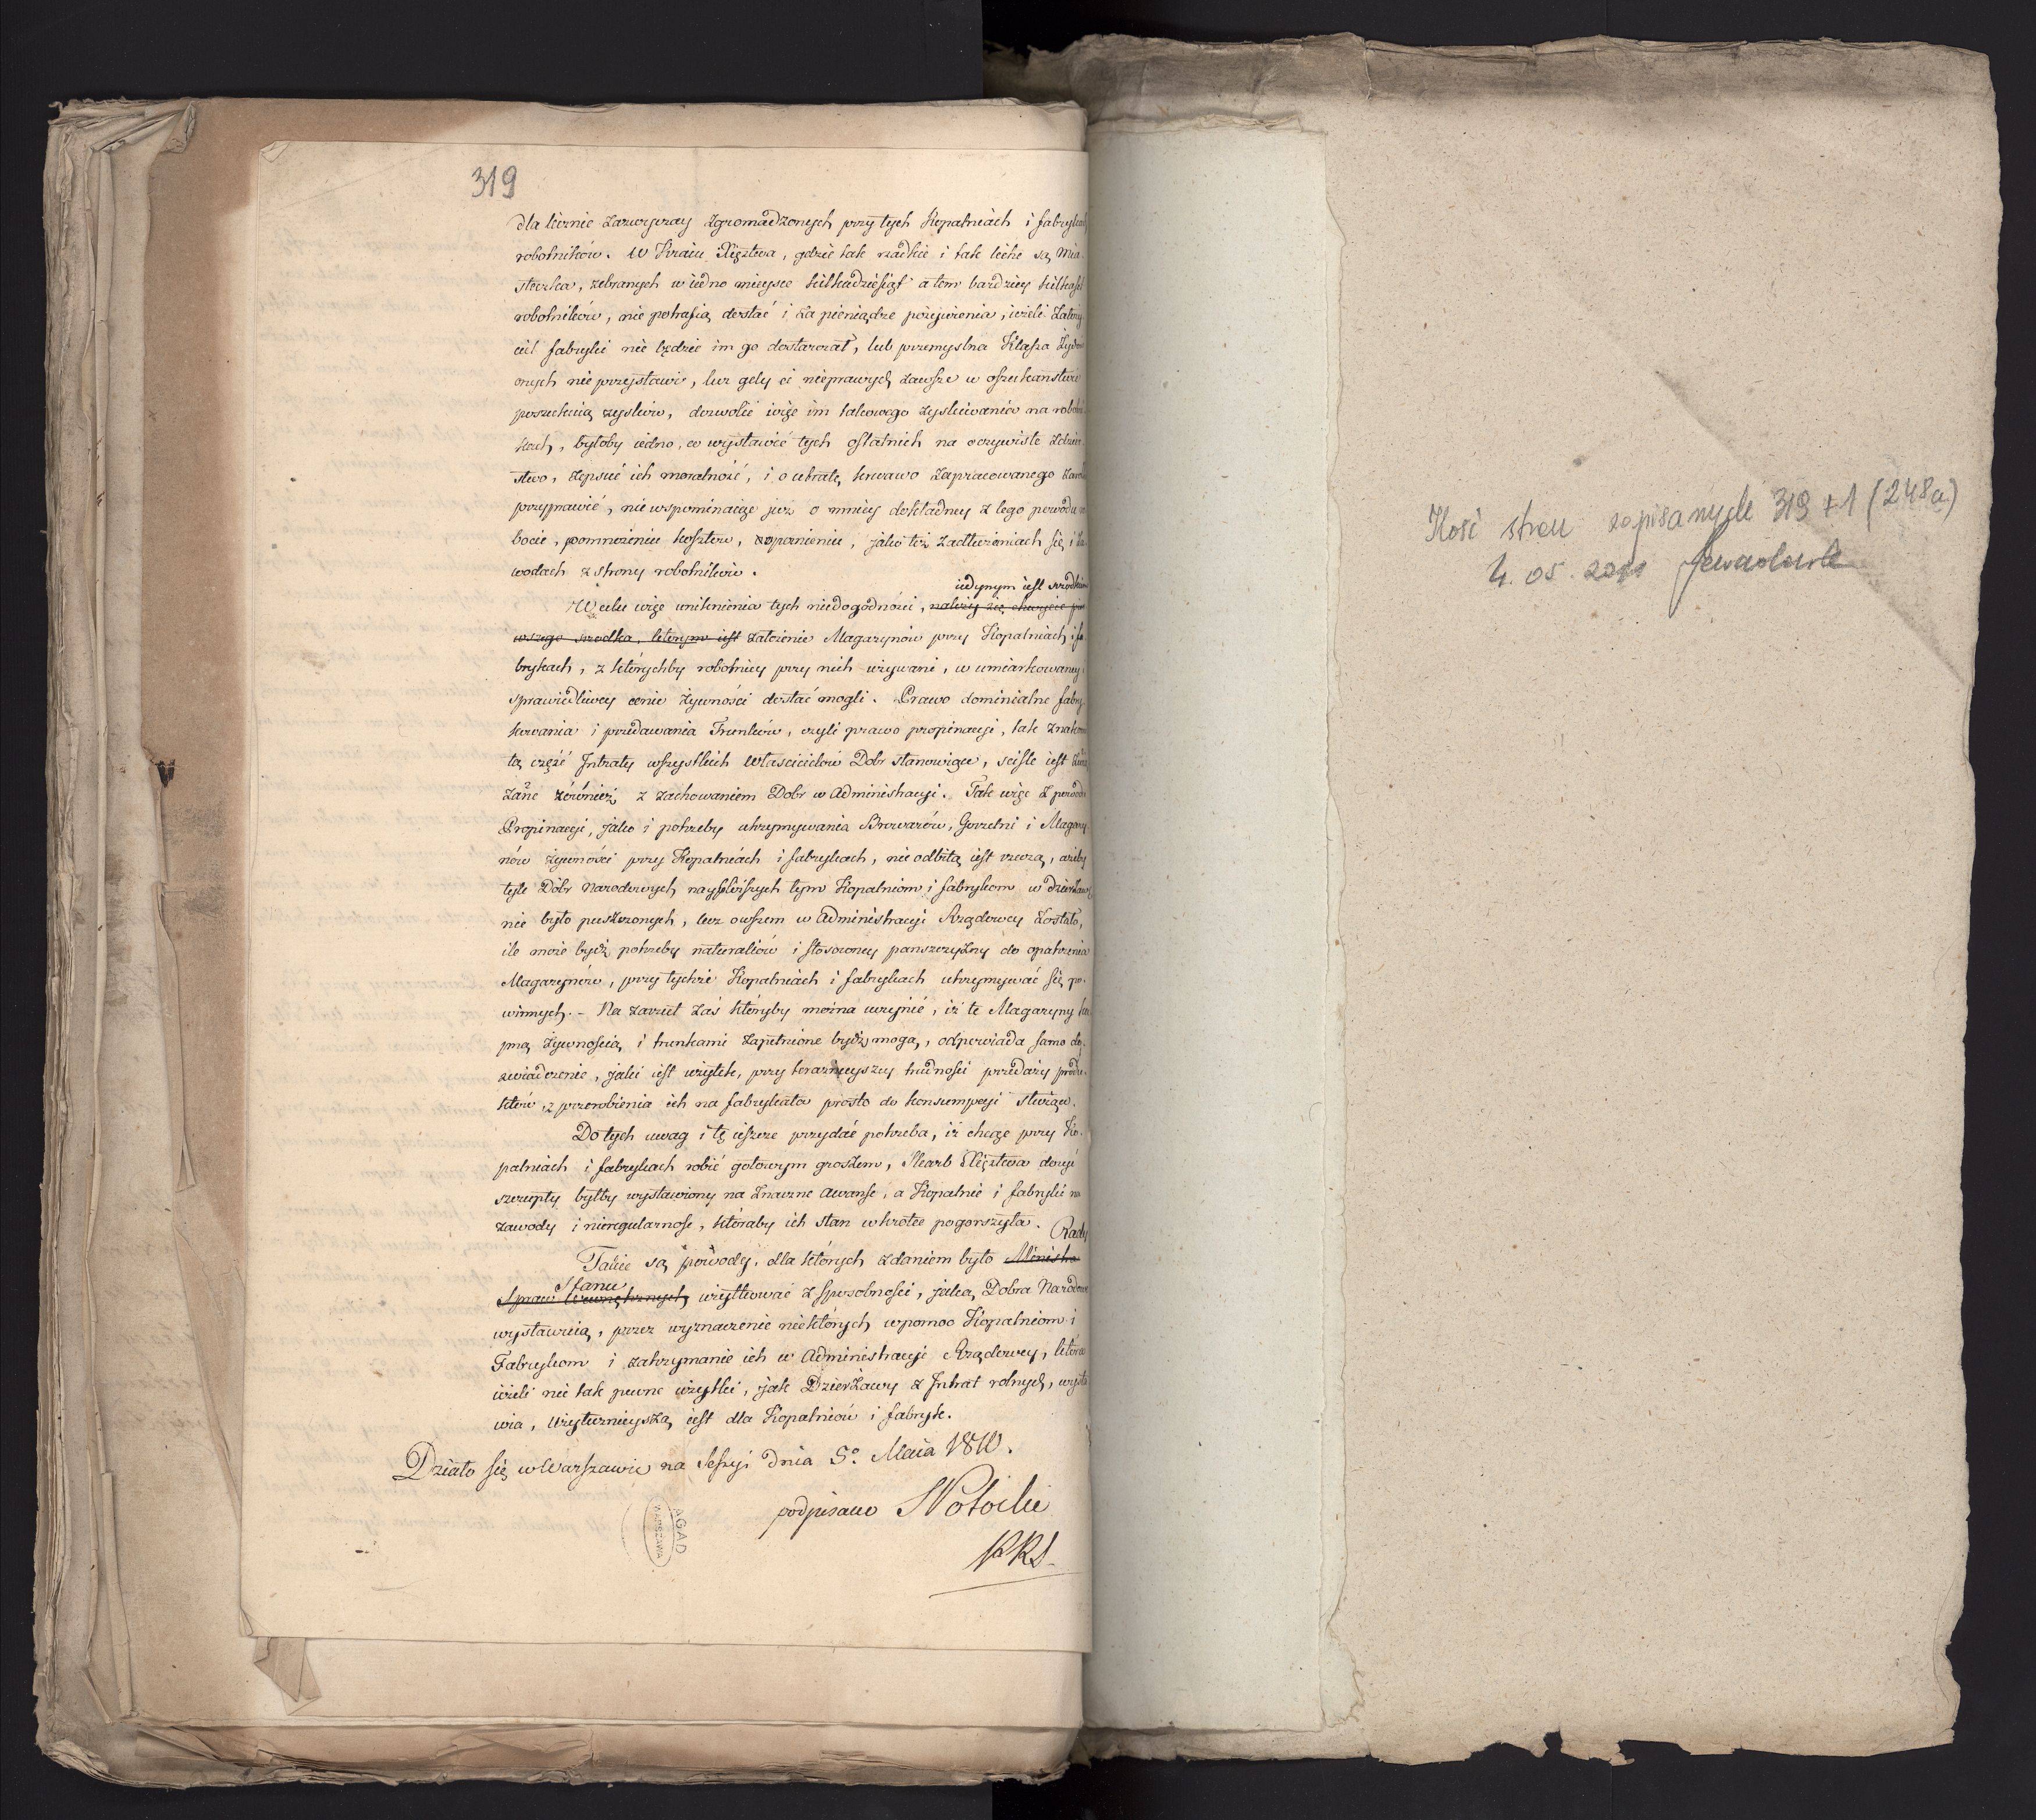 319
dla licznie zazwyczay zgromadzonych przy tych Kopalniach i fabrykach
robotników. W Kraiu Xięztwa, gdzie tak rzadkie i tak liche są Mia-
steczka, zebranych w iedno mieysce kilkadziesiąt a tem bardziey kilkaset
robotników, nie potrafią dostać i za pieniądze pożywienia, ieżeli
ciel fabryki nie będzie im go dostarczał, lub przemyslna Klassa Żydów
onych nie przystawi, lecz gdy ci nieprawych zawsze w oszukaństwie
poszukuią zysków, dozwolić więc im takowego zyskiwania na robotni-
kach, byłoby iedno, co wystawić tych ostatnich na oczywiste zdzier-
stwo, zepsuć ich moralność, i o utratę krwawo zapracowanego
przyprawić, nie wspominaiąc już o mniey dokładney z tego powodu ro-
bocie, pomnożeniu kosztów, jako też zadłużeniach się i za-
wodach z strony robotników.
iedynym iest srzodkiem
W celu więc uniknienia tych niedogodności, należy się chwycić pier-
wszego srzodka, którym iest założenie Magazynów przy Kopalniach i fa-
brykach, z którychby robotnicy przy nich używani, w umiarkowaney
sprawiedliwey cenie żywności dostać mogli. Prawo dominialne fabry-
kowania i przedawania Trunków, czyli prawo propinacyi, tak znakomi-
tą część Intraty wszystkich Właścicielów Dobr stanowiące, sciśle iest
zane również z zachowaniem Dobr w Administracyi. Tak więc z powodu
Propinacyi, jako i potrzeby utrzymywania Browarów, Gorzelni i Magazy-
nów żywności przy Kopalniach i fabrykach, nieodbitą iest rzeczą, ażeby
tyle Dóbr Narodowych naybliższych tym Kopalniom i fabrykom w dzierżawę
nie było puszczonych, lecz owszem w Administracyi Rządowey zostało,
ile może bydź potrzeby naturaliów i stosowney panszczyzny do opatrzenia
Magazynów, przy tychże Kopalniach i fabrykach utrzymywać się po-
winnych. - Na zarzut zaś któryby można uczynić, iż te Magazyny
pną żywnością i trunkami zapełnione bydź mogą, odpowiada samo do-
świadczenie, jaki iest użytek, przy terażnieyszey trudności przedaży produ-
któw z przerobienia ich na fabrykata prosto do konsumpcyi służące.
Do tych uwag i tę ieszcze przydać potrzeba, iż chcąc przy Ko-
palniach i fabrykach robić gotowym groszem, Skarb Xięztwa dosyć
szczupły byłby wystawiony na znaczne awanse, a Kopalnie i fabryki na
zawody i nieregularność, któraby ich stan wkrótce pogorszyła.
Rady
Takie są powody, dla których zdaniem było Ministra
Stanu
Spraw Wewnętrznych użytkować z sposobności, jaką Dobra Narodowe
wystawuią, przez wyznaczenie niektórych w pomoc Kopalniom i
Fabrykom i zatrzymanie ich w Administracyi Rządowey, która
ieżeli nie tak pewne użytki, jak Dzierżawy z Intrat rolnych, wysta-
wia, użytecznieyszą iest dla Kopalniów i fabryk.
Działo się w Warszawie na Sessyi dnia 5º Maia 1810.
podpisano
AGAD
WARSZAWA
Ilość stron zapisanych 319 + 1 (248a)
4. 05. 2011